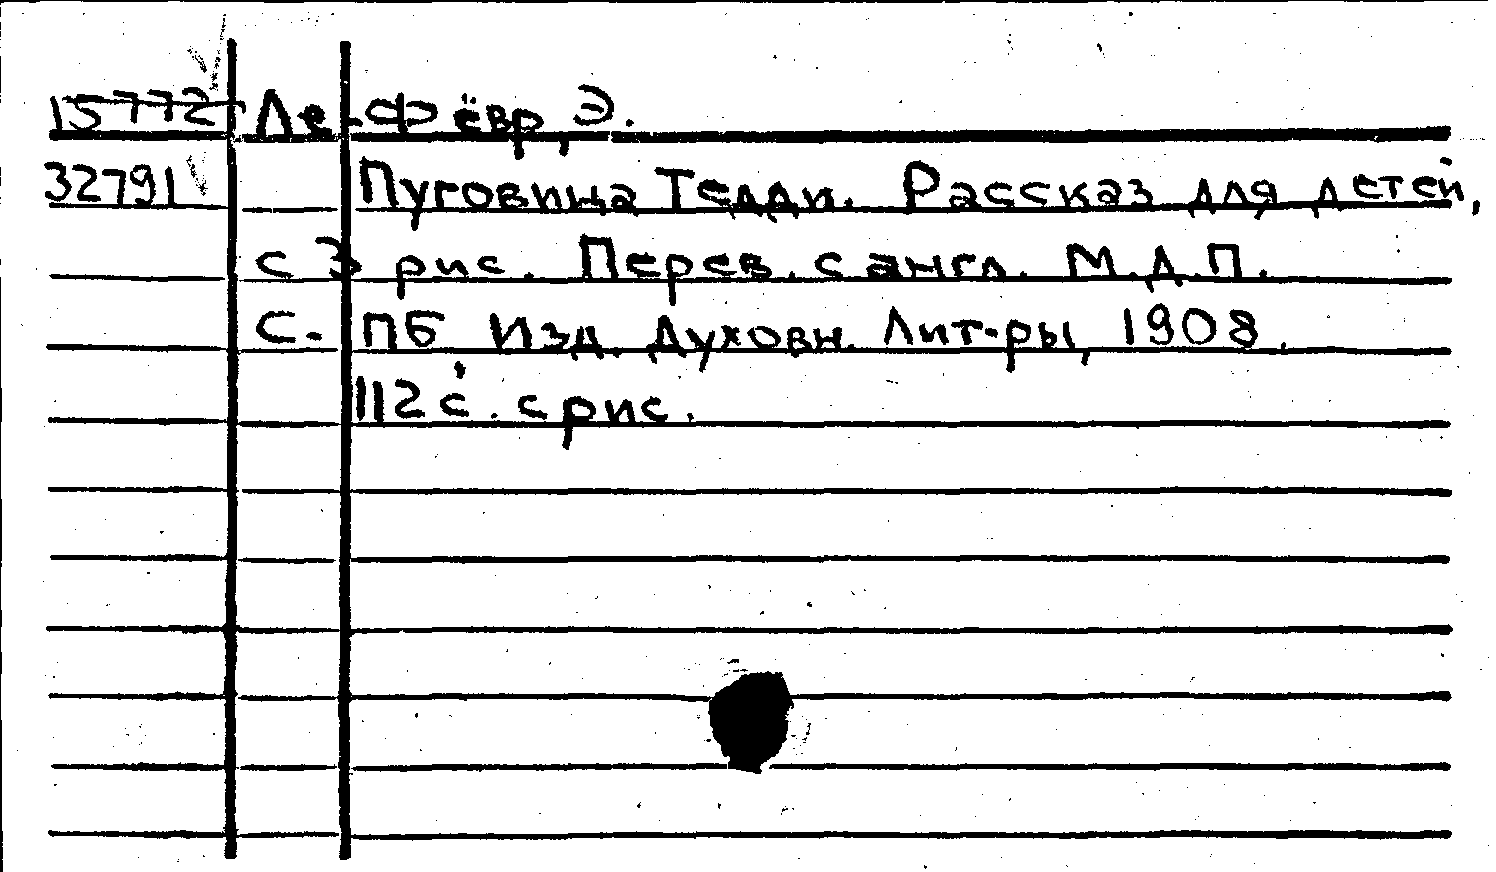 15772 Ле-Фёвр, Э.
32791 Пуговица Тедди. Рассказ для детей,
с 3 рис. Перев. с англ. М.Д.П.
С.-ПБ Изд. Духовн. Лит-ры, 1908.
112 с. с рис.